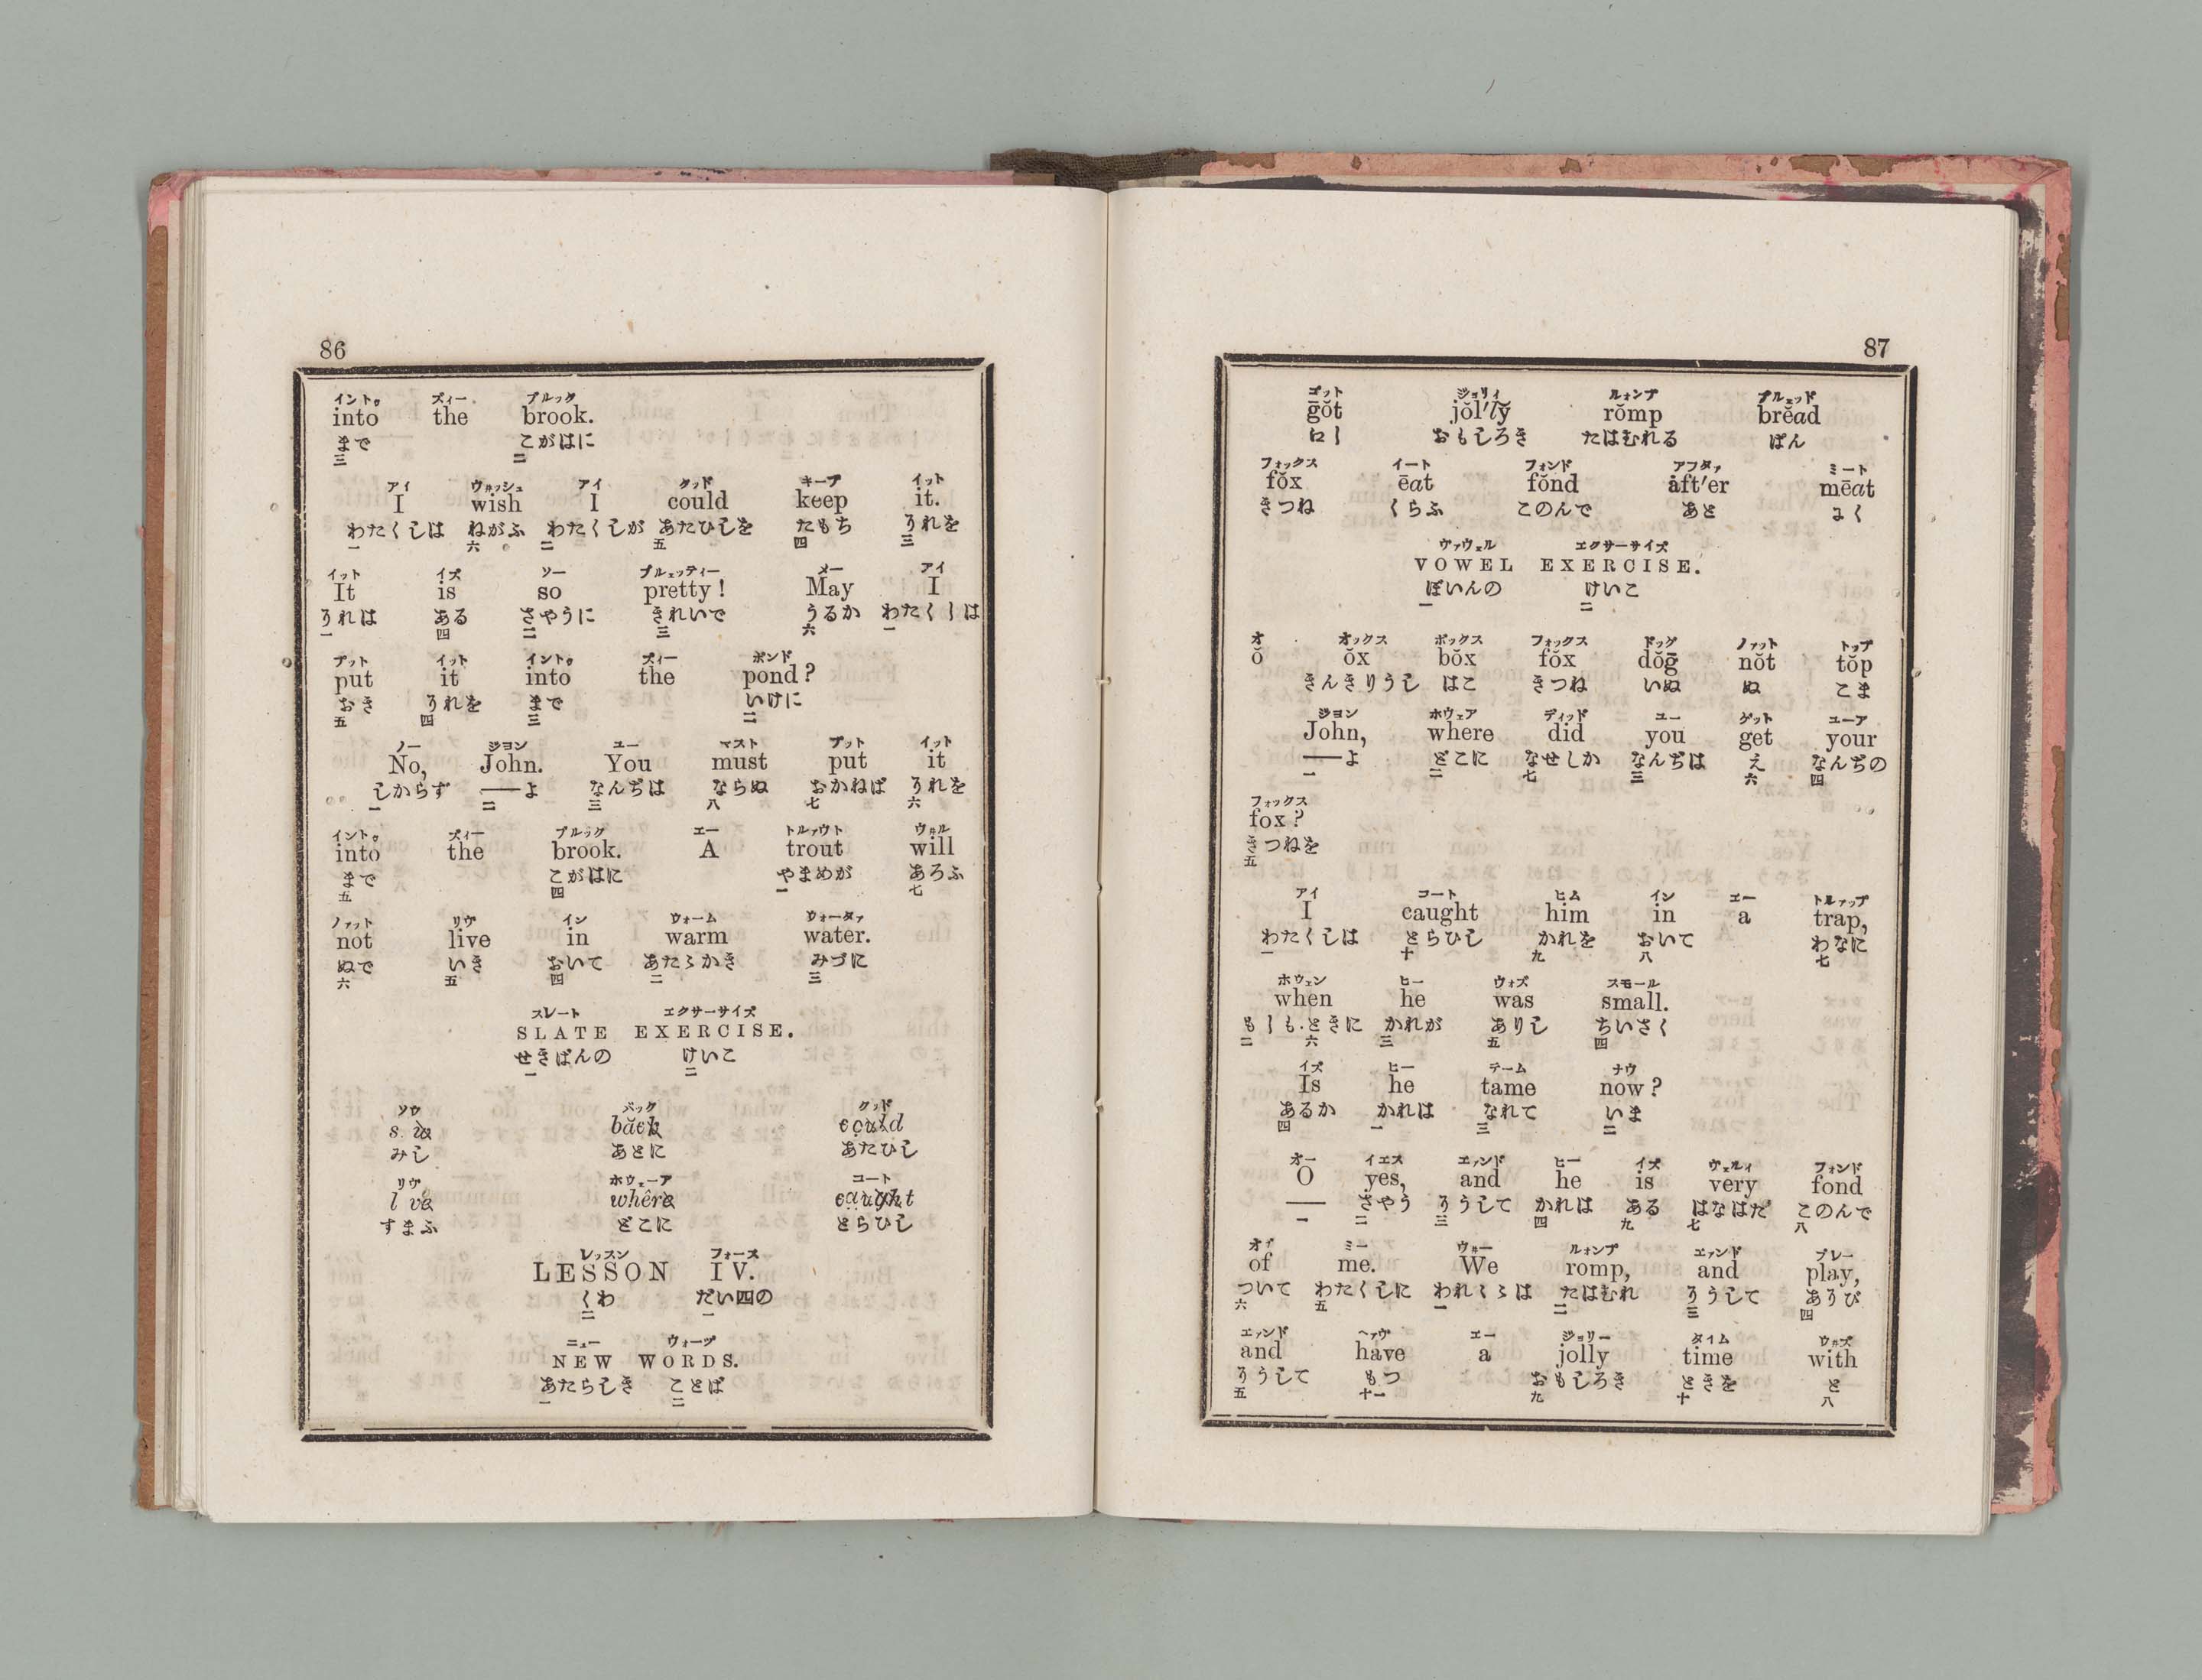 86
イントゥ ズィー ブルック
into the brook.
まで こがはに
三 二
アイ ウ井ッシュ アイ クッド キープ イット
I wish I could keep it.
わたくしは ねがふ わたくしが あたひしを たもち それを
一 六 二 五 四 三
イット イズ ソー プルェッティー メー アイ
It is so pretty! May I
それは ある さやうに きれいで うるか わたくしは
一 四 二 三 六 一
プット イット イントゥ ズィー ポンド
put it into the pond?
おき それを まで いけに
五 四 三 二
ノー ジョン ユー マスト プット イット
No, John. You must put it
しからず ——よ なんぢは ならぬ おかねば それを
一 二 三 八 七 六
イントゥ ズィー ブルック エー トルァウト ウ井ル
into the brook. A trout will
まで こがはに やまめが あろふ
五 四 一 七
ノァット リヴ イン ウォーム ウォータァ
not live in warm water.
ぬで いき おいて あたゝかき みづに
六 五 四 二 三
スレート エクサーサイズ
SLATE EXERCISE.
せきばんの けいこ
一 二
ソウ バック クッド
băck could
みし あとに あたひし
リヴ ホウェーア コート
whêre caught
すまふ どこに とらひし
レッスン フォース
LESSON IV.
くわ だい四の
二 一
ニュー ウォーヅ
NEW WORDS.
あたらしき ことば
一 二
87
ゴット ジョリィ ルォンプ ブルェッド
ḡŏt jŏl'ly̆ rŏmp brĕad
おもしろき たはむれる ぱん
フォックス イート フォンド アフタァ ミート
fŏx ēat fŏnd ȧft'er mēat
きつね くらふ このんで あと
ヴァウェル エクサーサイズ
VOWEL EXERCISE.
ぼいんの けいこ
一 二
オ オックス ボックス フォックス ドッグ ノァット トップ
ŏ ŏx bŏx fŏx dŏḡ nŏt tŏp
きんきりうし はこ きつね いぬ ぬ こま
ジョン ホウェア ディッド ユー ゲット ユーア
John, where did you get your
——よ どこに なせしか なんぢは え なんぢの
一 二 七 三 六 四
フォックス
fox?
きつねを
五
アイ コート ヒム イン エー トルァップ
I caught him in a trap,
わたくしは とらひし かれを おいて わなに
一 十 九 八 七
ホウェン ヒー ウォズ スモール
when he was small.
もしも・ときに かれが ありし ちいさく
二 六 三 五 四
イズ ヒー テーム ナウ
Is he tame now?
あるか かれは なれて いま
四 一 三 二
オー イエス エァンド ヒー イズ ヴェルィ フォンド
O yes, and he is very fond
—— さやう そうして かれは ある はなはだ このんで
一 二 三 四 九 七 八
オヴ ミー ウ井ー ルォンプ エァンド プレー
of me. We romp, and play,
ついて わたくしに われくゝは たはむれ そうして あそび
六 五 一 二 三 四
エァンド ヘァヴ エー ジョリー タイム ウ井ズ
and have a jolly time with
そうして もつ おもしろき ときを と
五 十一 九 十 八